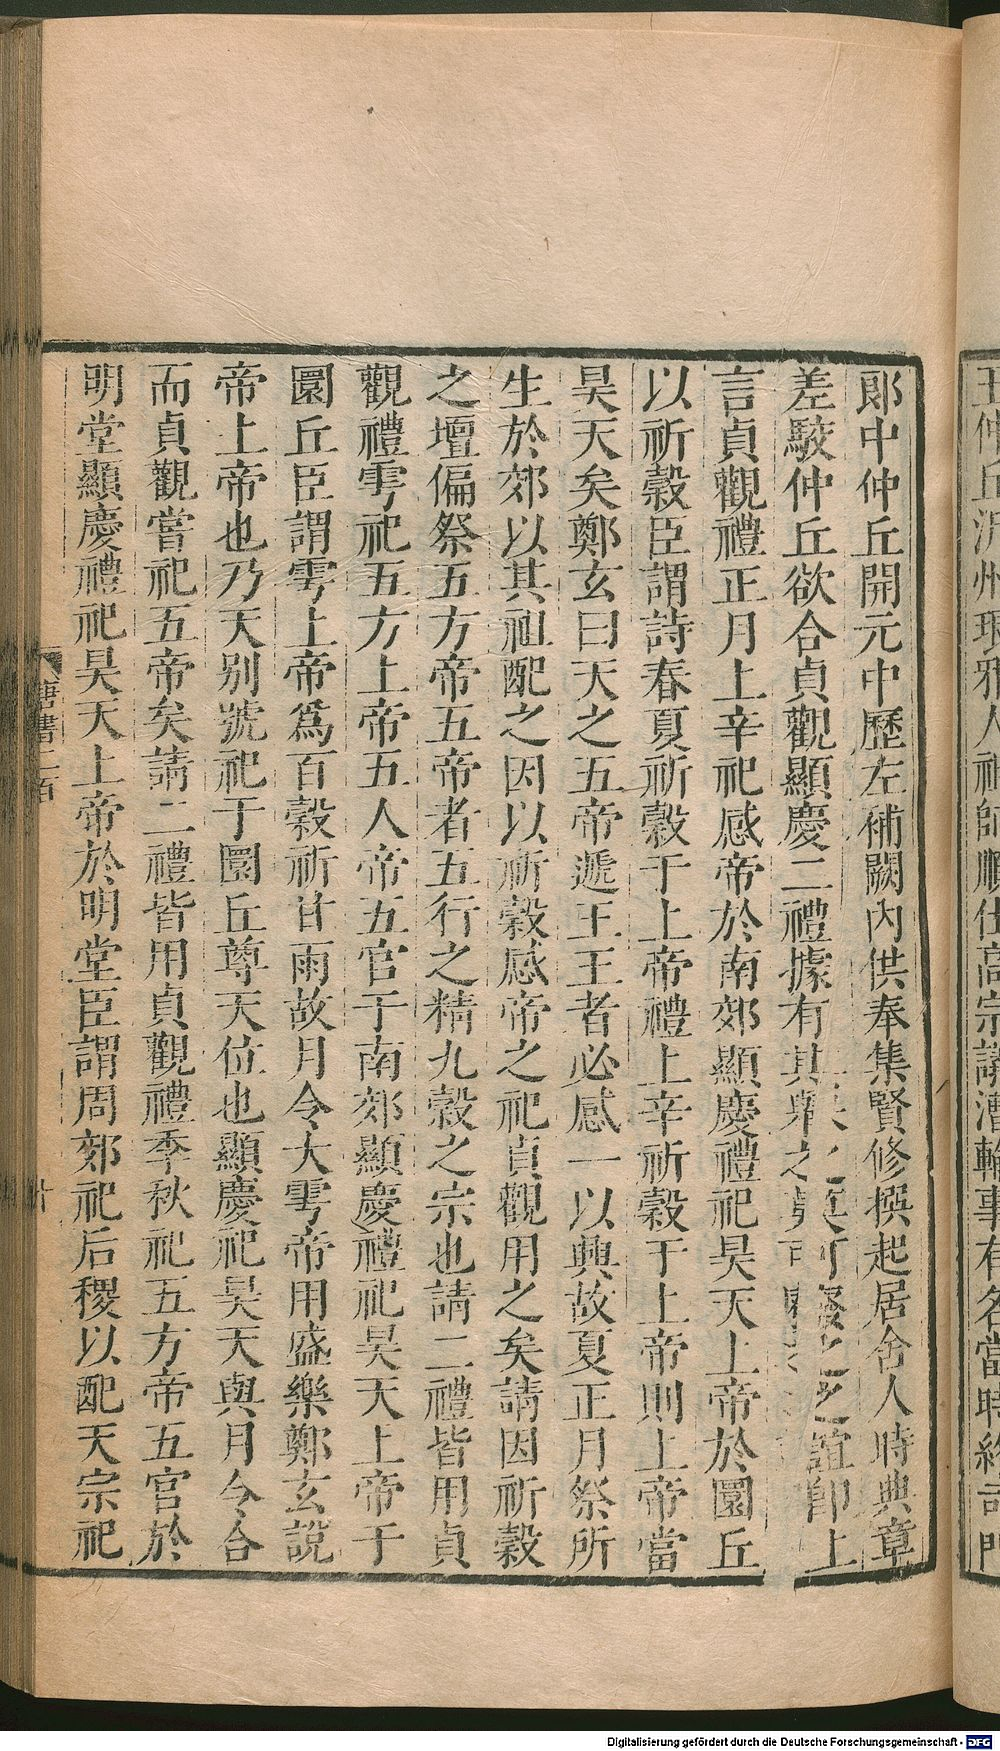 王仲丘沂州琅邪人祖師順仕高宗議漕輸事有名當時終司門
郎中仲丘開元中歷左補闕內供奉集賢修撰起居舍人時典章
差駮仲丘欲合貞觀顯慶二禮據有其舉之莫可廢之誼即上
言貞觀禮正月上辛祀感帝於南郊顯慶禮祀昊天上帝於圜丘
以祈穀臣謂詩春夏祈穀于上帝禮上辛祈穀于上帝則上帝當
昊天矣鄭玄曰天之五帝遞王王者必感一以興故夏正月祭所
生於郊以其祖配之因以祈穀感帝之祀貞觀用之矣請因祈穀
之壇偏祭五方帝五帝者五行之精九穀之宗也請二禮皆用貞
觀禮雩祀五方上帝五人帝五官于南郊顯慶禮祀昊天上帝于
圜丘臣謂雩上帝為百穀祈甘雨故月令大雩帝用盛樂鄭玄說
帝上帝也乃天別號祀于圜丘尊天位也顯慶祀昊天與月令合
而貞觀嘗祀五帝矣請二禮皆用貞觀禮季秋祀五方帝五官於
明堂顯慶禮祀昊天上帝於明堂臣謂周郊祀后稷以配天宗祀
唐書二百
十
Digitalisierung gefördert durch die Deutsche Forschungsgemeinschaft - DFG